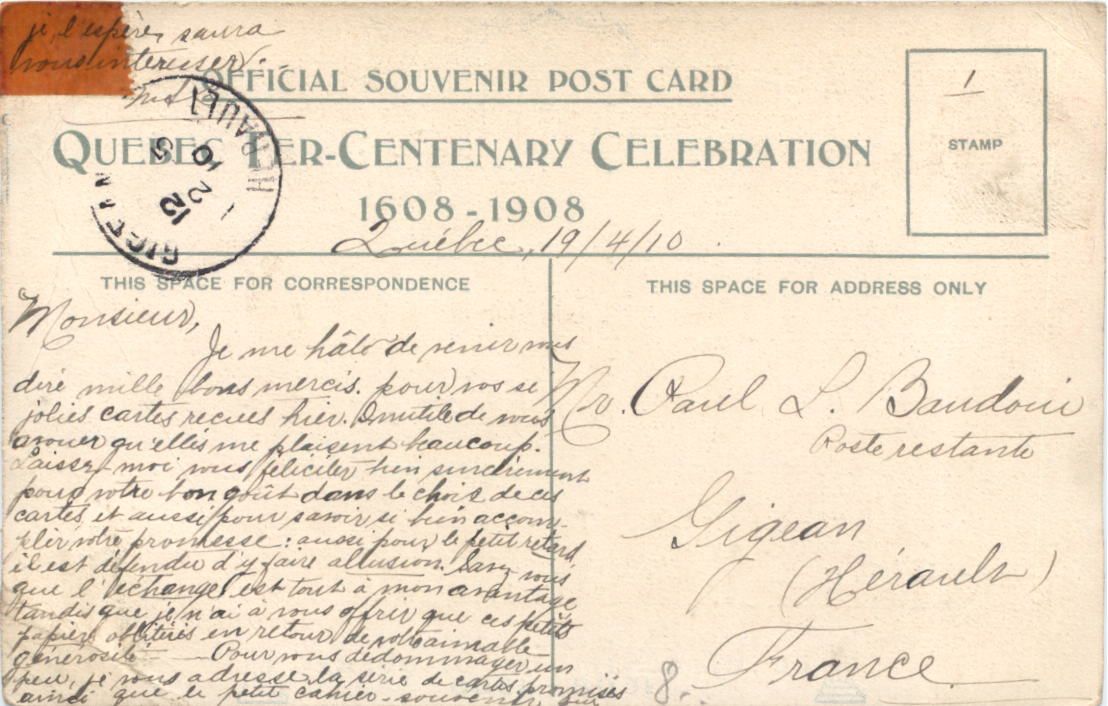 OFFICIAL SOUVENIR POST CARD
QUEBEC TER-CENTENARY CELEBRATION
1608-1908
1
STAMP
GIGEAN
HERAULT
12
2
10
Québec, 19/4/10.
THIS SPACE FOR CORRESPONDENCE
THIS SPACE FOR ADDRESS ONLY
Monsieur,
Je me hâte de venir vous
dire mille bons mercis pour vos si
jolies cartes recues hier. Inutile de vous
avouer qu'elles me plaisent beaucoup.
Laissez-moi vous féliciter bien sincèrement
pour votre bon goût dans le choix de ces
cartes, et aussi pour savoir si bien accom-
plir votre promesse: aussi pour le petit retard,
il est défendu d'y faire allusion. Savez vous
que l'échange est tout à mon avantage
tandis que je n'ai à vous offrir que ces petits
papiers oblitérés en retour de votre aimable
générosité — Pour vous dédommager un
peu, je vous adresse la série de cartes promises
ainsi que le petit cahier-souvenir qui
je l'espère, saura
vous intéresser.
Mr. Paul L. Baudoin
Poste restante
Gigean
(Hérault)
France.
8.